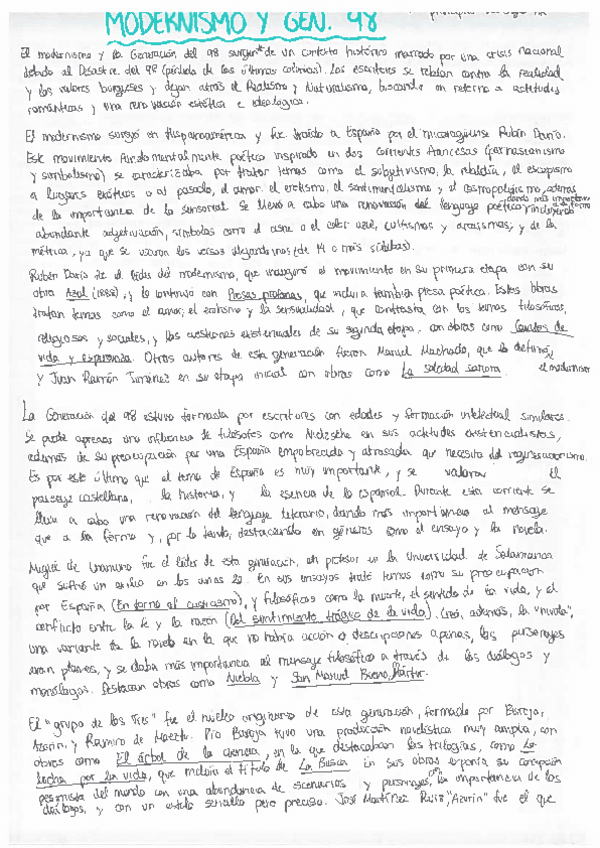 MODERNISMO Y GEN. 98
El modernismo y la Generación del 98 surgen de un contexto histórico marcado por una crisis nacional
debido al Desastre del 98 (pérdida de las últimas colonias). Los escritores se rebelan contra la realidad
y los valores burgueses y dejan atrás el Realismo y Naturalismo, buscando un retorno a actitudes
románticas y una renovación estética e ideológica.
El modernismo surgió en Hispanoamérica y fue traído a España por el nicaragüense Rubén Darío.
Este movimiento fundamentalmente poético inspirado en dos corrientes francesas (parnasianismo
y simbolismo) se caracterizaba por tratar temas como el subjetivismo, la rebeldía, el escapismo
a lugares exóticos o al pasado, el amor, el erotismo, el sentimentalismo y el cosmopolitismo, además
de la importancia de lo sensorial. Se llevó a cabo una renovación del lenguaje poético, dando más importancia a la forma incluyendo
abundante adjetivación, símbolos como el cisne o el color azul, cultismos y arcaísmos; y de la
métrica, ya que se usaron los versos alejandrinos (de 14 o más sílabas).
Rubén Darío fue el líder del modernismo, que inauguró el movimiento en su primera etapa con su
obra Azul (1888), y lo continuó con Prosas profanas, que incluía también prosa poética. Estas obras
tratan temas como el amor, el erotismo y la sensualidad, que contrasta con los temas filosóficos,
religiosos y sociales, y las cuestiones existenciales de su segunda etapa, con obras como Cantos de
vida y esperanza. Otros autores de esta generación fueron Manuel Machado, que la definió,
y Juan Ramón Jiménez en su etapa inicial con obras como La soledad sonora. el modernismo
La Generación del 98 estuvo formada por escritores con edades y formación intelectual similares.
Se puede apreciar una influencia de filósofos como Nietzsche en sus actitudes existencialistas,
además de su preocupación por una España empobrecida y atrasada que necesita del regeneracionismo.
Es por este último que el tema de España es muy importante, y se valoran el
paisaje castellano, la historia, y la esencia de lo español. Durante esta corriente se
lleva a cabo una renovación del lenguaje literario, dando más importancia al mensaje
que a la forma y, por lo tanto, destacando en géneros como el ensayo y la novela.
Miguel de Unamuno fue el líder de esta generación, un profesor en la Universidad de Salamanca
que sufrió un exilio en los años 20. En sus ensayos trató temas como su preocupación
por España (En torno al casticismo), y filosóficos como la muerte, el sentido de la vida, y el
conflicto entre la fe y la razón (Del sentimiento trágico de la vida). Creó, además, la "nivola",
una variante de la novela en la que no había acción o descripciones apenas, los personajes
eran planos, y se daba más importancia al mensaje filosófico a través de los diálogos y
monólogos. Destacan obras como Niebla y San Manuel Bueno, Mártir.
El "grupo de los Tres" fue el núcleo originario de esta generación, formado por Baroja,
Azorín, y Ramiro de Maeztu. Pío Baroja tuvo una producción novelística muy amplia, con
obras como El árbol de la ciencia, en la que destacaban las trilogías, como La
lucha por la vida, que incluía el título de La Busca. En sus obras exponía su concepción
pesimista del mundo con una abundancia de escenarios y personajes, la importancia de los
diálogos, y con un estilo sencillo pero preciso. José Martínez Ruiz, "Azorín" fue el que